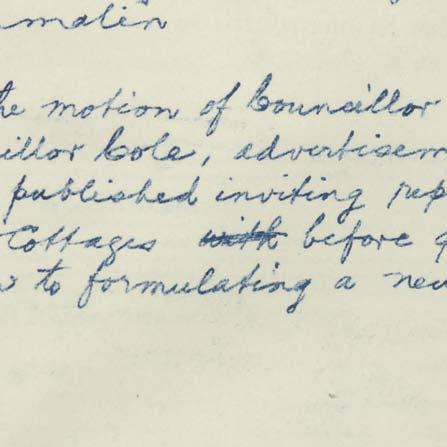 malin
he motion of Councillor
illor Cole, advertisem
published inviting rep
Cottages with before
to formulating a new